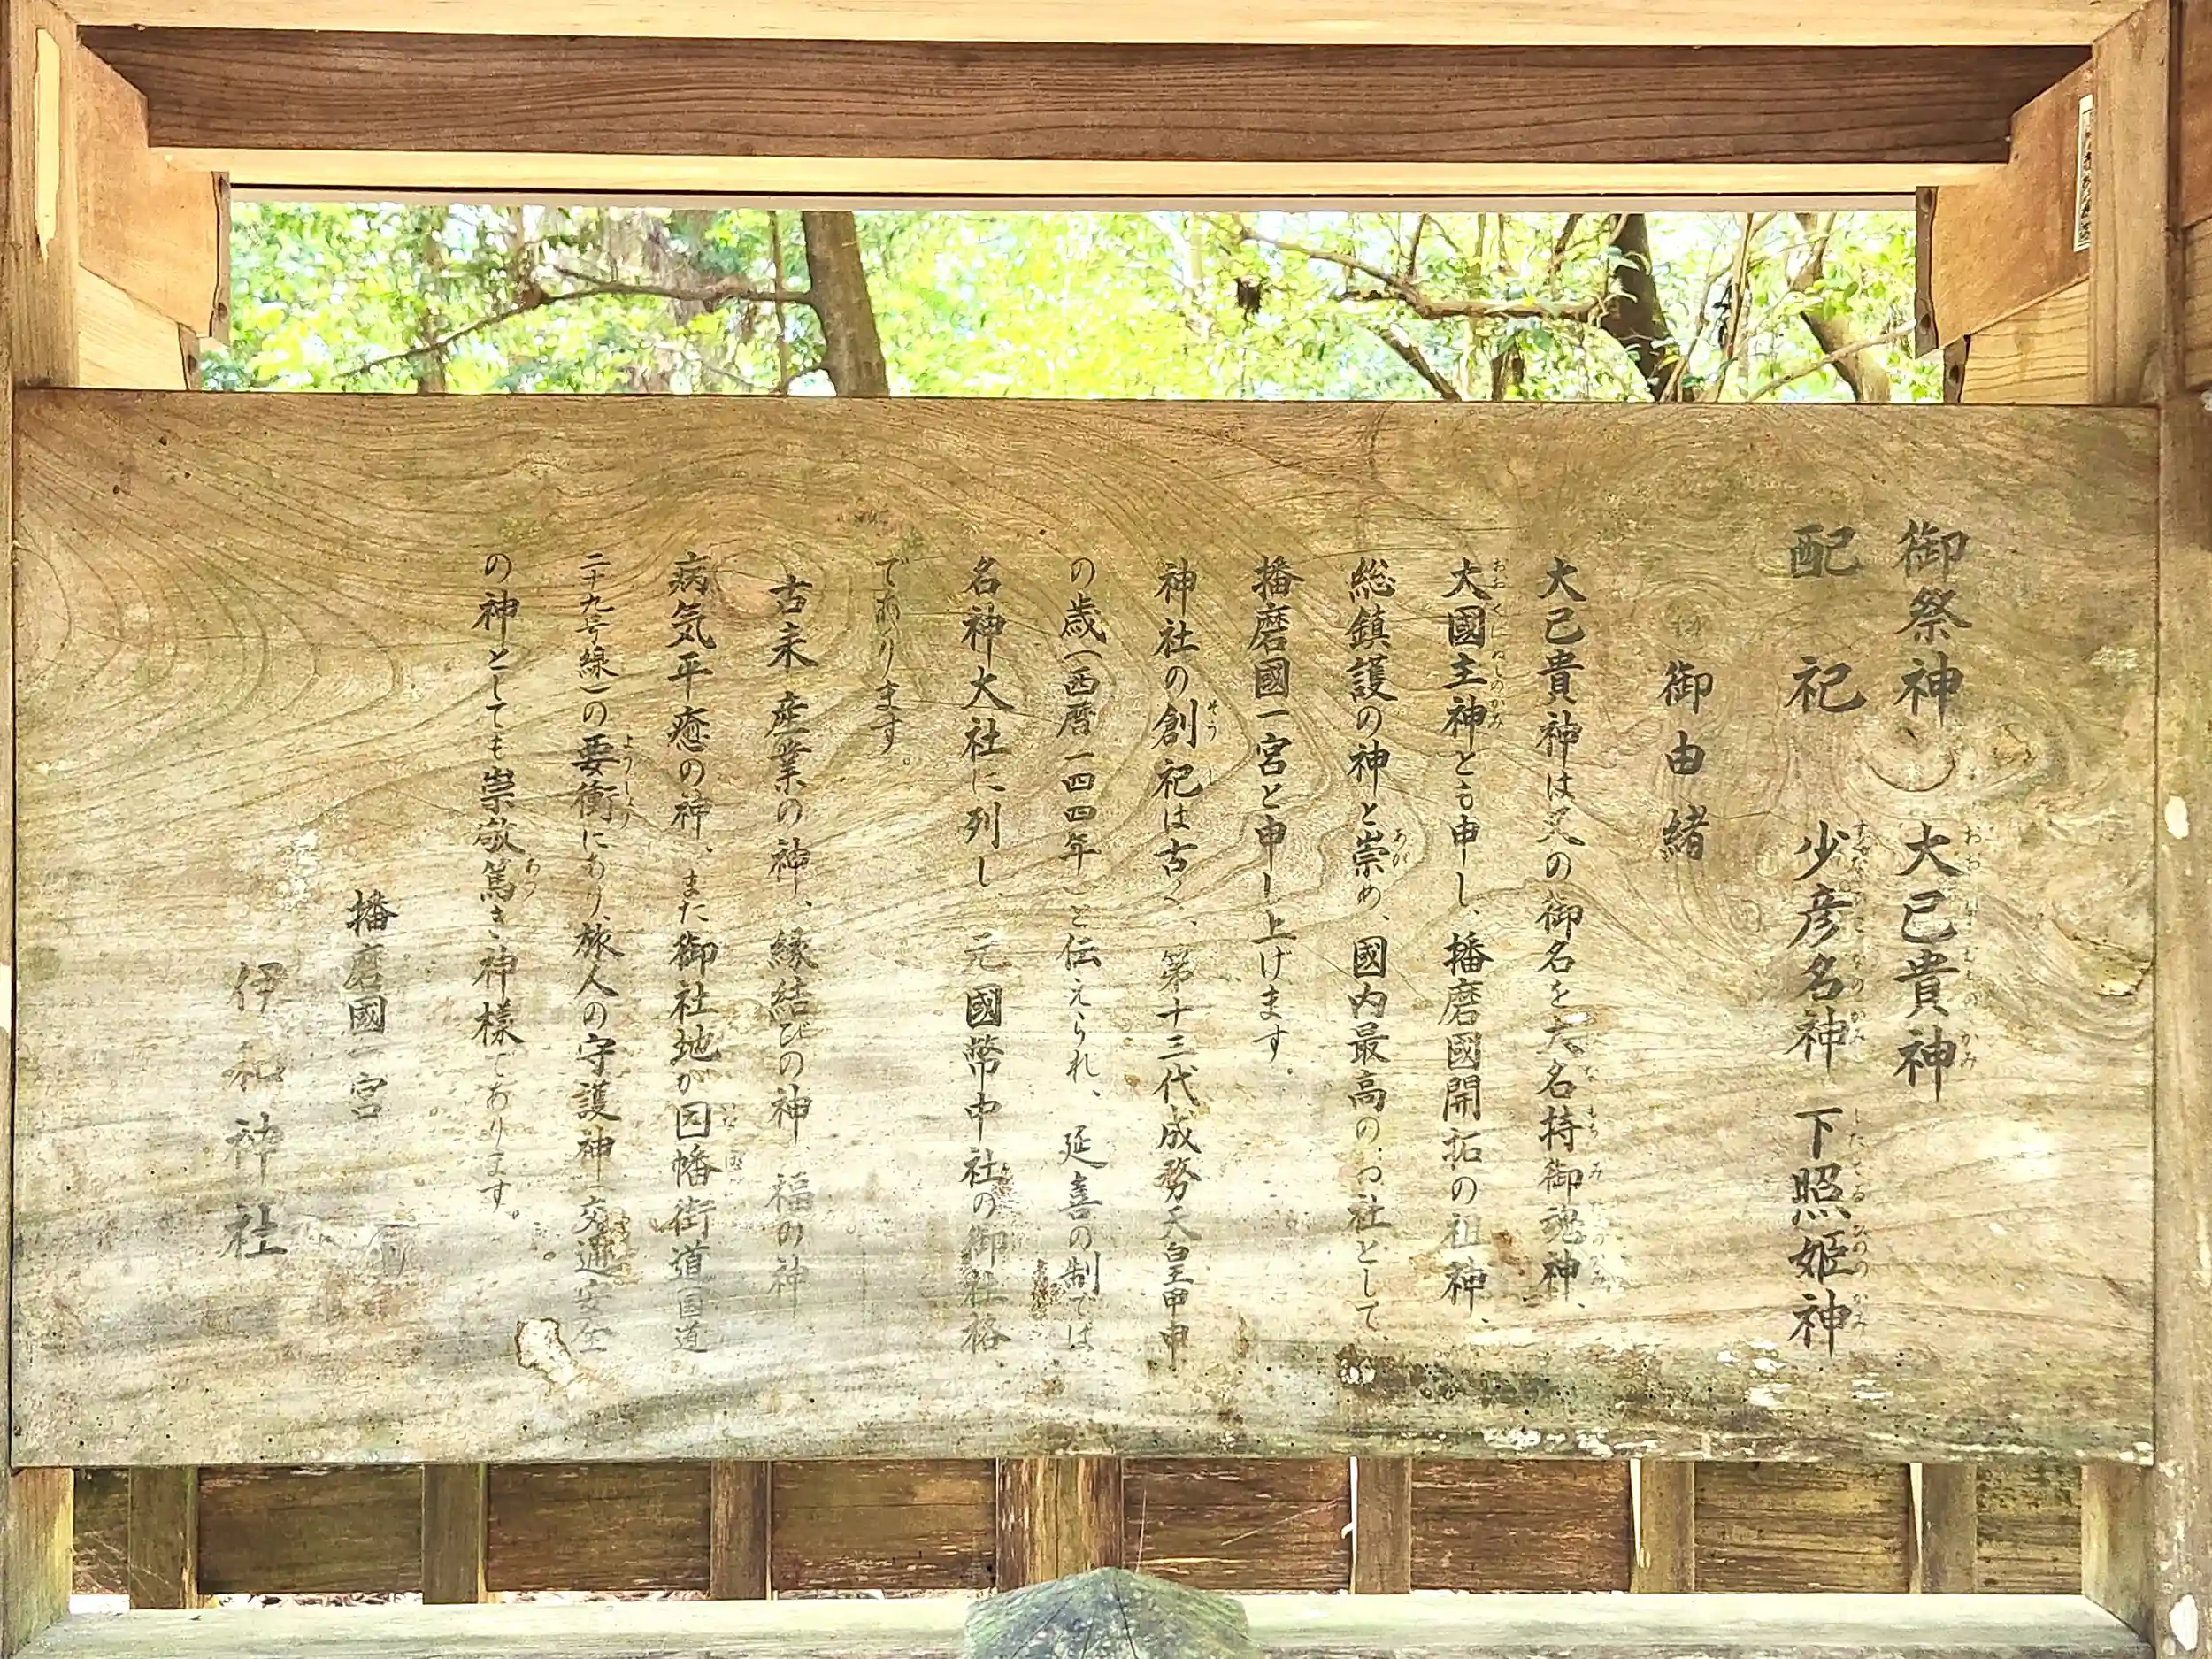 御祭神 大己貴神
配祀 少彦名神 下照姫神
御由緒
大己貴神は又の御名を大名持御魂神、
大國主神とも申し、播磨國開拓の祖神、
総鎮護の神と崇め、國内最高のお社として
播磨國一宮と申し上げます。
神社の創祀は古く、第十三代成務天皇甲申
の歳(西暦一四四年)と伝えられ、延喜の制では
名神大社に列し、元國幣中社の御社格
であります。
古来産業の神、縁結びの神、福の神
病気平癒の神、また御社地が因幡街道(国道
二十九号線)の要衝にあり、旅人の守護神、交通安全
の神としても崇敬篤き神様であります。
播磨國一宮
伊和神社